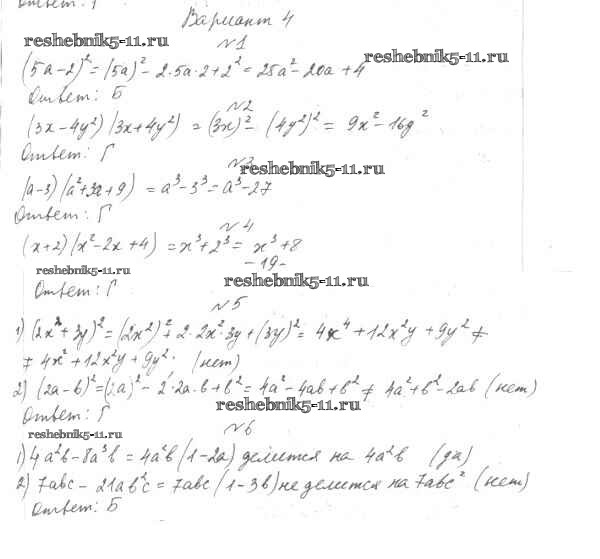 Ответ: Г
Вариант 4
reshebnik5-11.ru
№1
reshebnik5-11.ru
(5a-2)² = (5a)² - 2·5a·2 + 2² = 25a² - 20a + 4
Ответ: Б
№2
(3x-4y²)(3x+4y²) = (3x)² - (4y²)² = 9x² - 16y²
Ответ: Г
№3
reshebnik5-11.ru
(a-3)(a²+3a+9) = a³-3³ = a³-27
Ответ: Г
№4
(x+2)(x²-2x+4) = x³+2³ = x³+8
-19-
reshebnik5-11.ru
reshebnik5-11.ru
Ответ: Г
№5
1) (2x²+3y)² = (2x²)² + 2·2x²·3y + (3y)² = 4x⁴ + 12x²y + 9y² ≠
≠ 4x² + 12x²y + 9y². (нет)
2) (2a-b)² = (2a)² - 2·2a·b + b² = 4a² - 4ab + b² ≠ 4a² + b² - 2ab (нет)
reshebnik5-11.ru
Ответ: Г
№6
reshebnik5-11.ru
1) 4a²b - 8a³b = 4a²b (1-2a) делится на 4a²b (да)
2) 7abc - 21ab²c = 7abc (1-3b) не делится на 7abc² (нет)
Ответ: Б